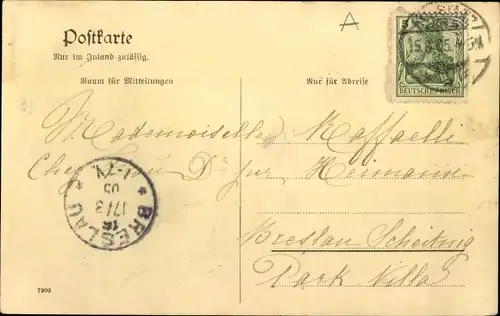 Postkarte
Nur im Inland zulässig.
Raum für Mitteilungen
Nur für Adresse
DEUTSCHES REICH
Mademoiselle Raffaelli
Chez Dr jur Heimann
Breslau Scheitnig
Park Villa
BRESLAU
17/3
05
7-8V
7900